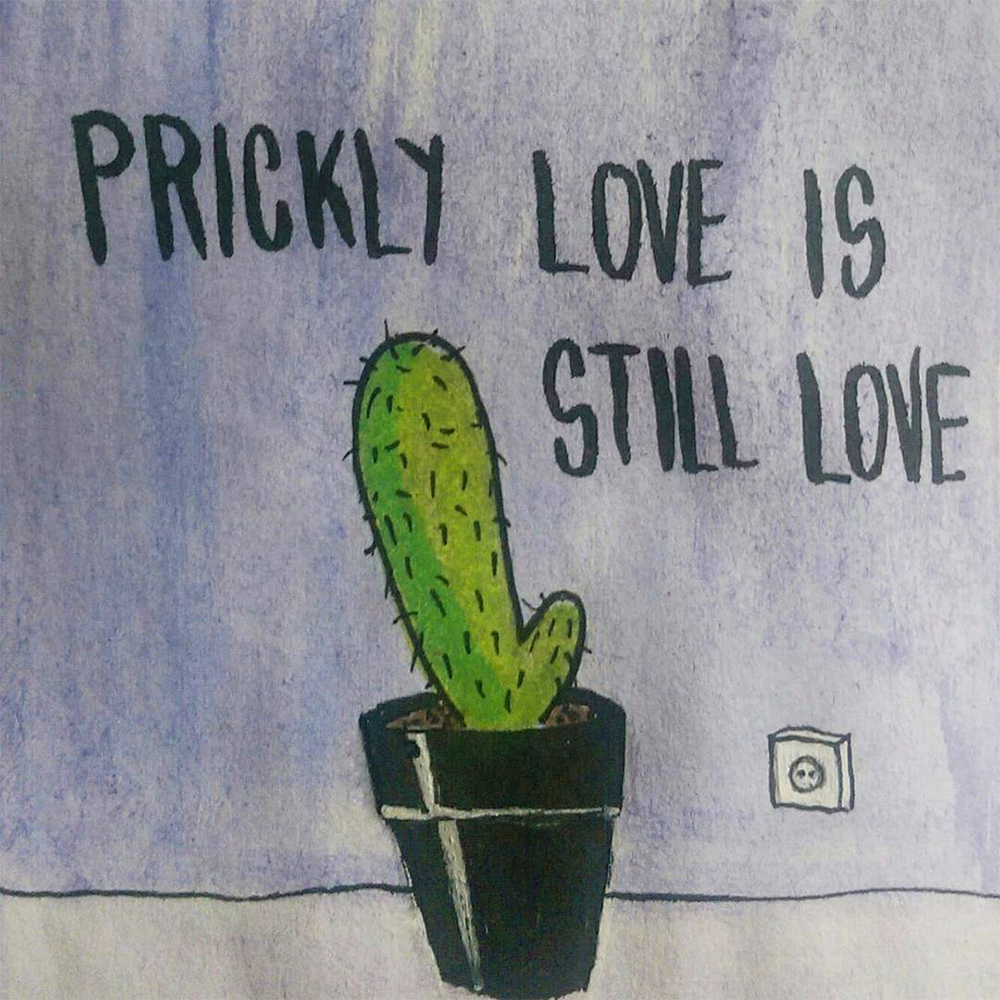 PRICKLY LOVE IS
STILL LOVE